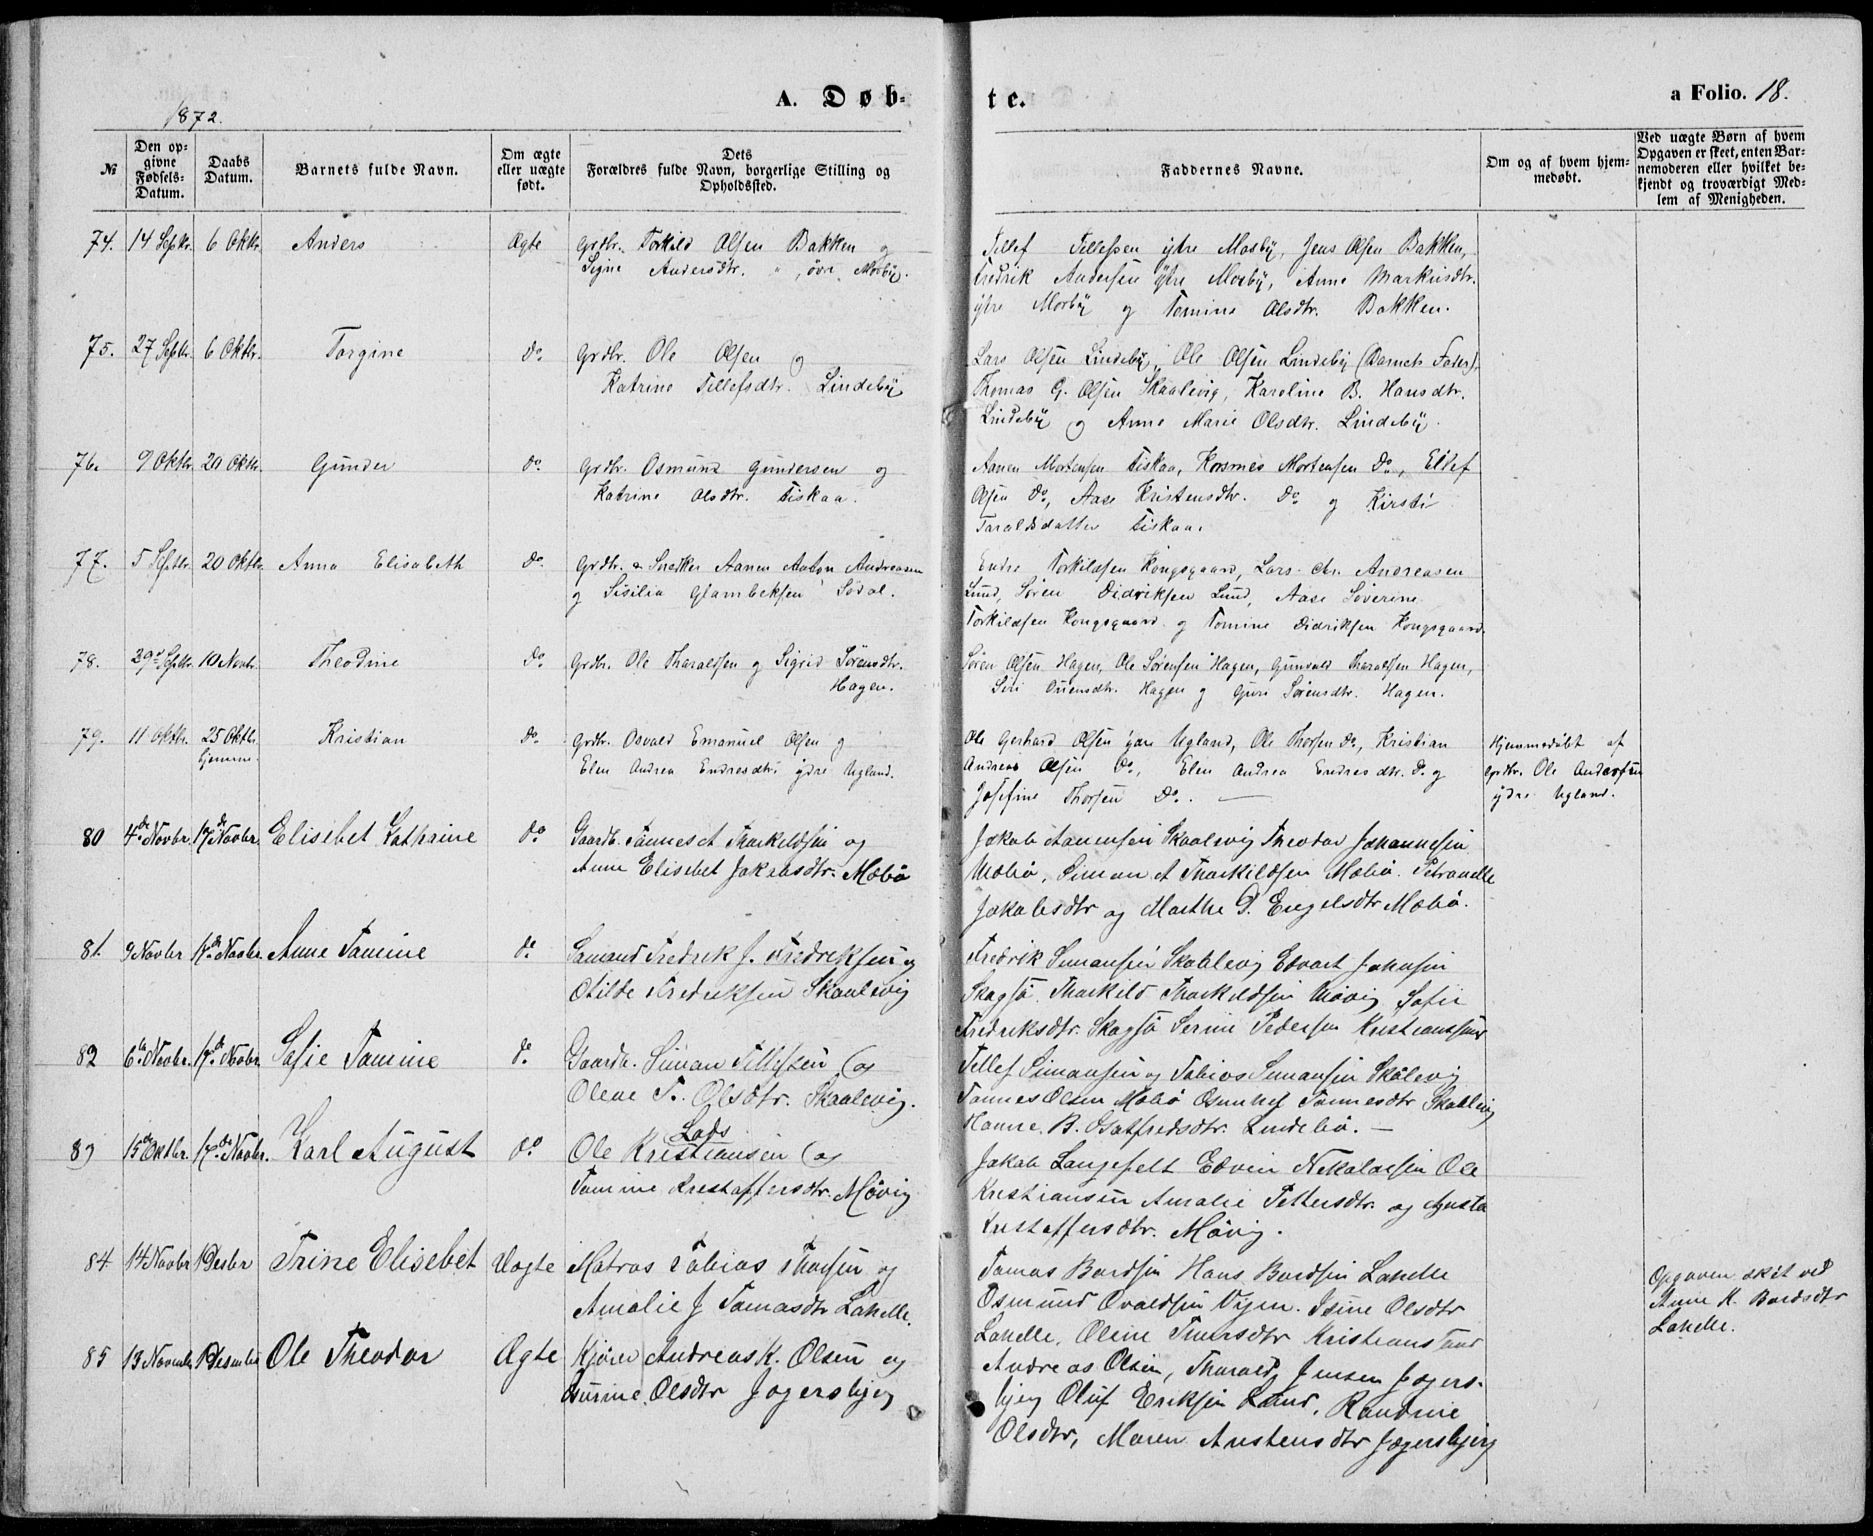 1872.
A. Døb-
te.
a Folio. 18.
№
Den op-
givne
Fødsels-
Datum.
Daabs
Datum.
Barnets fulde Navn.
Om ægte
eller uægte
født.
Dets
Forældres fulde Navn, borgerlige Stilling og
Opholdssted.
Faddernes Navne.
Om og af hvem hjem-
medøbt.
Ved uægte Børn af hvem
Opgaven er skeet, enten Bar-
nemoderen eller hvilket be-
kjendt og troværdigt Med-
lem af Menigheden.
74. 14 Septbr. 6 Oktbr. Anders Ægte Grdbr. Torkild Olsen Bakken og
Signe Andersdtr. " , övre Mosby.
Tellef Tellefsen ytre Mosby, Jens Olsen Bakken,
Fredrik Andersen ytre Mosby, Anne Markusdtr.
ytre Mosby og Tomine Olsdtr. Bakken.
75. 27 Septbr. 6 Oktbr. Torgine do. Grdbr. Ole Olsen og
Katrine Tellefsdtr. Lindeby
Lars Olsen Lindeby, Ole Olsen Lindeby (Barnets Fader),
Thomas G. Olsen Skaalevig, Karoline B. Hansdtr.
Lindeby og Anne Marie Olsdtr. Lindeby.
76. 9 Oktbr. 20 Oktbr. Gunder do. Grdbr. Osmund Gundersen og
Katrine Olsdtr. Fiskaa.
Aanen Mortensen Fiskaa, Rasmus Mortensen Do., Ellef
Olsen Do., Aase Kristensdtr. Do. og Kirsti
Taraldsdatter Fiskaa.
77. 5 Septbr. 20 Oktbr. Anna Elisabeth do. Grdbr. & Snekker Aanen Anton Andreasen
og Sisilia Glambeksen Södal.
Endre Torkildsen Kongsgaard, Lars Chr. Andreasen
Lund, Sören Didriksen Lund, Aase Severine
Torkildsen Kongsgaard og Tomine Didriksen Kongsgaard.
78. 29de Septbr. 10 Novbr. Theodine Do. Grdbr. Ole Tharaldsen og Sigrid Sörensdtr.
Hagen.
Sören Olsen Hagen, Ole Sörensen Hagen, Gunvald Tharaldsen Hagen,
Siri Ouensdtr. Hagen og Guri Sörensdtr. Hagen.
79. 11 Oktbr. 25 Oktbr.
hjemme.
Kristian Do. Grdbr. Osvald Emanuel Olsen og
Elen Andrea Endresdtr. ydre Ugland.
Ole Gerhard Olsen ydre Ugland, Ole Thorsen Do., Kristian
Andreas Olsen Do., Elen Andrea Endresdtr. Do. og
Josefine Thorsen Do. —
Hjemmedöbt af
Grdbr. Ole Andersen
ydre Ugland.
80 4de Novbr. 17de Novbr. Elisebet Kathrine do Gaardb. Tannes A Tharkildsen og
Anne Elisebet Jakobsdtr. Mæbö
Jakob Aanensen Skaalevig Theodor Johannesen
Mæbö, Simon A Tharkildsen Mæbö. Petronelle
Jakobsdtr og Marthe D. Engelsdtr Mæbö.
81. 9 Novbr 17de Novbr. Anne Tomine do. Sømand Fredrek J. Fredreksen og
Otilde Fredreksen Skaalevig
Fredrik Simonsen Skaalevig Edvart Johnsen
Skagsö. Tharkild Tharkildsen Møvig Sofie
Fredriksdtr. Skagsö Serine Pedersen Kristianssand
82 6te Novbr. 17de Novbr. Sofie Tomine do. Gaardb. Simon Tellefsen og
Olene T. Olsdtr. Skaalevig.
Tellef Simonsen og Tobias Simonsen Skålevig
Tannes Olsen Mæbö Tannesdtr Skaalevig
Hanne. B. Gotfredsdtr. Lindebö. —
83 15de Oktbr. 17de Novbr. Karl August do Lods
Ole Kristiansen og
Tomine Krestoffersdtr. Møvig
Jakob Langefelt Edvin Nikolaisen Ole
Kristiansen Amalie Pettersdtr. og Gusta
Kristoffersdtr. Møvig.
84 14 Novbr 1 Desbr Trine Elisebet Uægte Matros Tobias Thorsen og
Amalie J Tomasdtr Lahelle.
Tomas Bordsen Hans Bordsen Lahelle
Osmund Ovaldsen Vigen. Isine Olsdtr
Lahelle. Oline Kristiansand
Opgaven skét ved
Anne K. Bordsdtr
Lahelle.
85 13 Novembr 1 Desember Ole Theodor Ægte Kjører Andreas K. Olsen og
Gurine Olsdtr Jegersbjerg
Andreas Olsen, Tharald Jensen Jegers-
bjerg Oluf Eriksen Lund, Randine
Olsdtr, Maren Anstensdtr Jegersbjerg